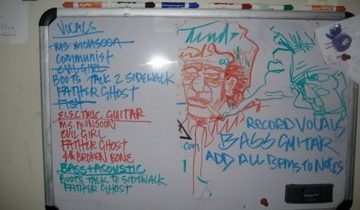 VOCALS
MS. MONSOON
COMMUNIST
EVIL GIRL
BOOTS TALK 2 SIDEWALK
FATHER GHOST
FISH
ELECTRIC GUITAR
MS. MONSOON
EVIL GIRL
FATHER GHOST
BROKEN BONE
BASS + ACOUSTIC
BOOTS TALK TO SIDEWALK
FATHER GHOST
RECORD VOCALS
BASS GUITAR
ADD ALL BPMS TO NOTES